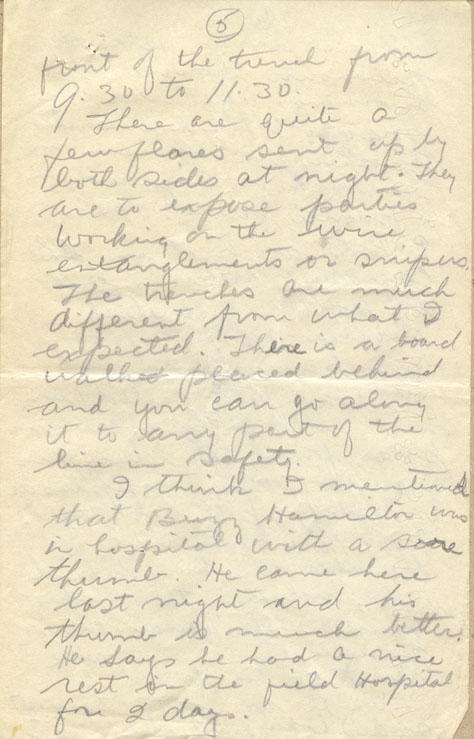 5
front of the trench from
9.30 to 11.30.
There are quite a
few flares sent up by
both sides at night. They
are to expose parties
working on the wire
entanglements or snipers.
The trenches are much
different from what I
expected. There is a board
walked placed behind
and you can go along
it to any part of the
line in safety.
I think I mentioned
that Buzz Hamilton was
in hospital with a sore
thumb. He came here
last night and his
thumb is much better.
He says he had a nice
rest in the field Hospital
for 2 days.